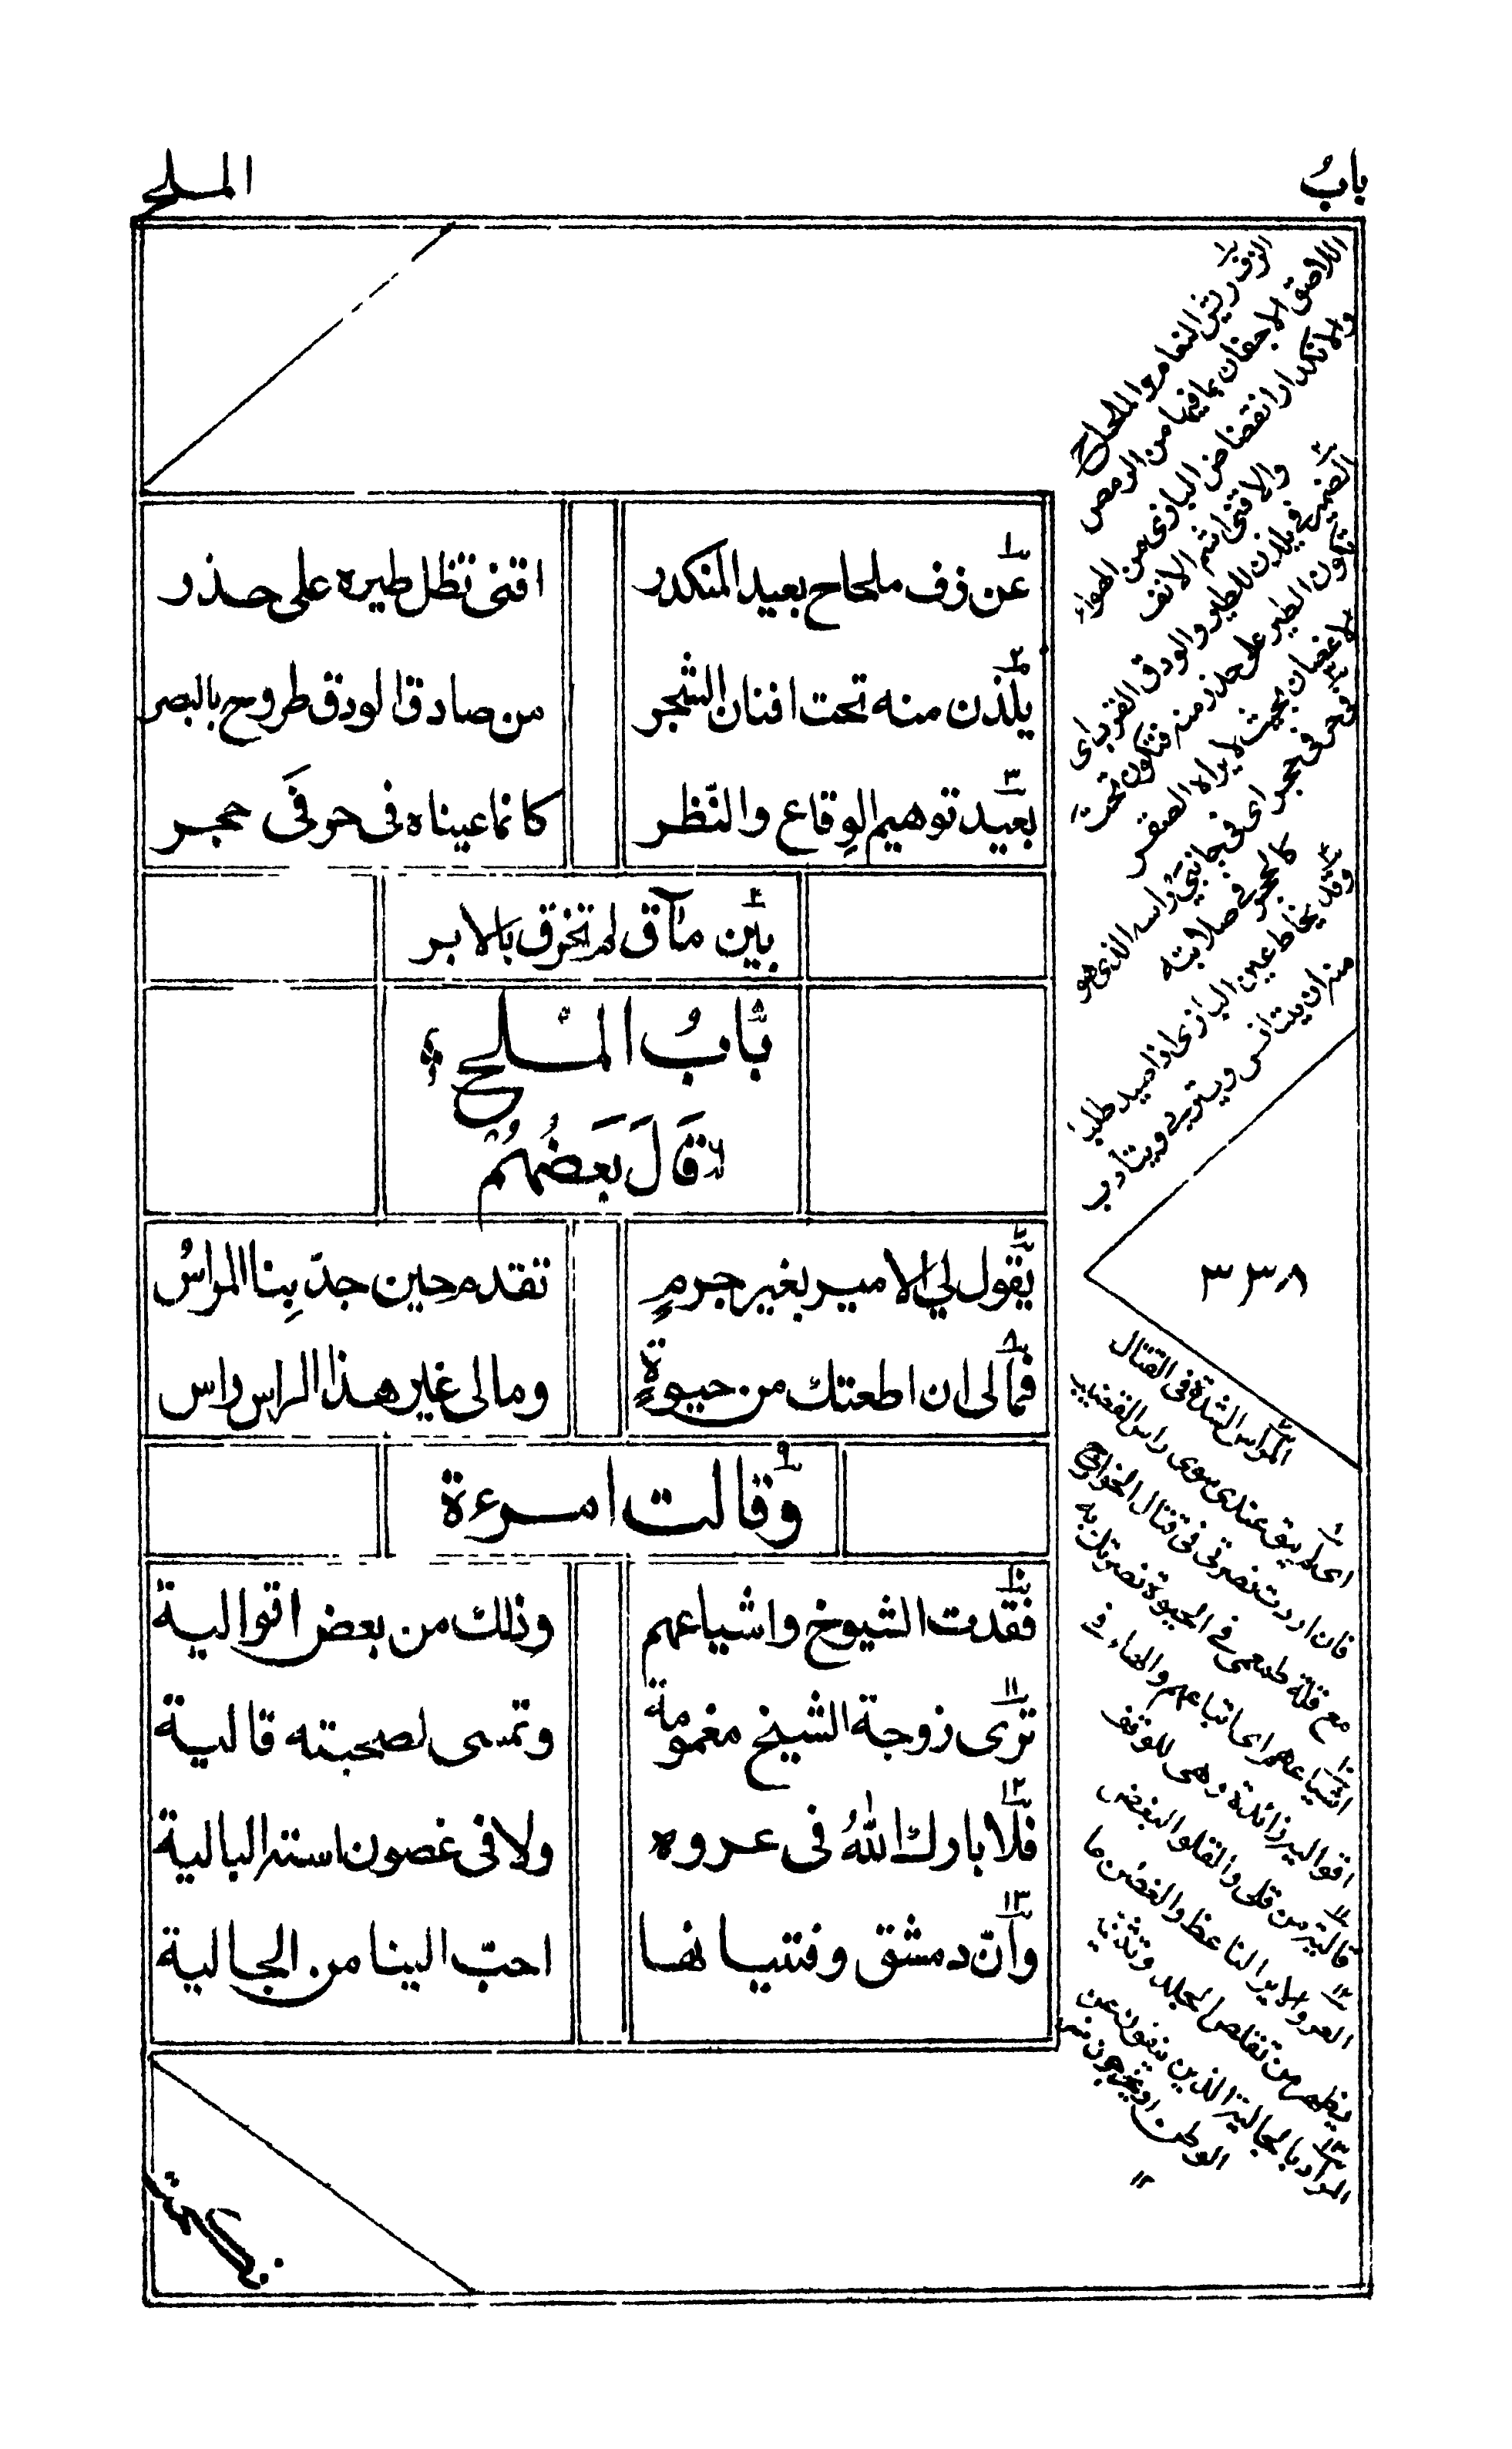 بابُ
الملح
عن زف ملحاح بعيد المنكدر
اقنى تظل طيره على حذر
يلذن منه تحت افنان الشجر
من صادق الودق طروح بالبصر
بعيد توهيم الوِقاع والنّظر
كانما عيناه فى حرفَى حجر
بين مآقٍ لم تخرق بالابر
بابُ الملح
قَالَ بَعَضُهُم
يقول لي الامير بغير جرمٍ
تقدم حين جدّ بِنا المراسُ
فمالى ان اطعتك من حيوةٍ
ومالى غير هذا الراس راس
وقالت امرءة
فقدت الشيوخ واشياعهم
وذلك من بعض اقوالية
ترى زوجة الشيخ مغمومة
وتمسى لصحبته قالية
فلا بارك اللهُ فى عروه
ولا فى غصون استه البالية
وانّ دمشق وفتيانها
احبّ الينا من الجالية
١ الزف ريش النعام والملحاح
اللاصق الاجفان بما فيها من الرمص
والانكدار انقضاض البازى من الهواء
والاقنى اشم الانف
٢ الضمير فى يلذن للطير والودق القرب اى
تكون الطير على حذر منه فتكون تحت
الاغصان بحيث لا يراه الصقر
٣ فى حرفى حجر اى فى جانبى راسه الذى هو
كالحجر فى صلابته
٤ وقد يخاط عين البازى اذا صيد طلبا
منه ان يستانس ويتربى ويتأدب
٣٣٨
٧ المراس الشدة فى القتال
٨ اى لم يبق عندى سوى راس القضيب
فان اردت نصرتى فى قتال الخوارج
مع قلة طمعى فى الحيوة نصرتك به
١٠ اشياعهم اى اتباعهم والهاء فى
اقواليه زائدة وهى للوقف
١١ قالية من قلى والقلو البغض
١٢ العرو الاير الناعظ والغضن ما
يظهر من تقلص الجلد وتثنيه
١٣ المراد بالجالية الذين ينفون عن
الوطن او يخرجون منه
١٢